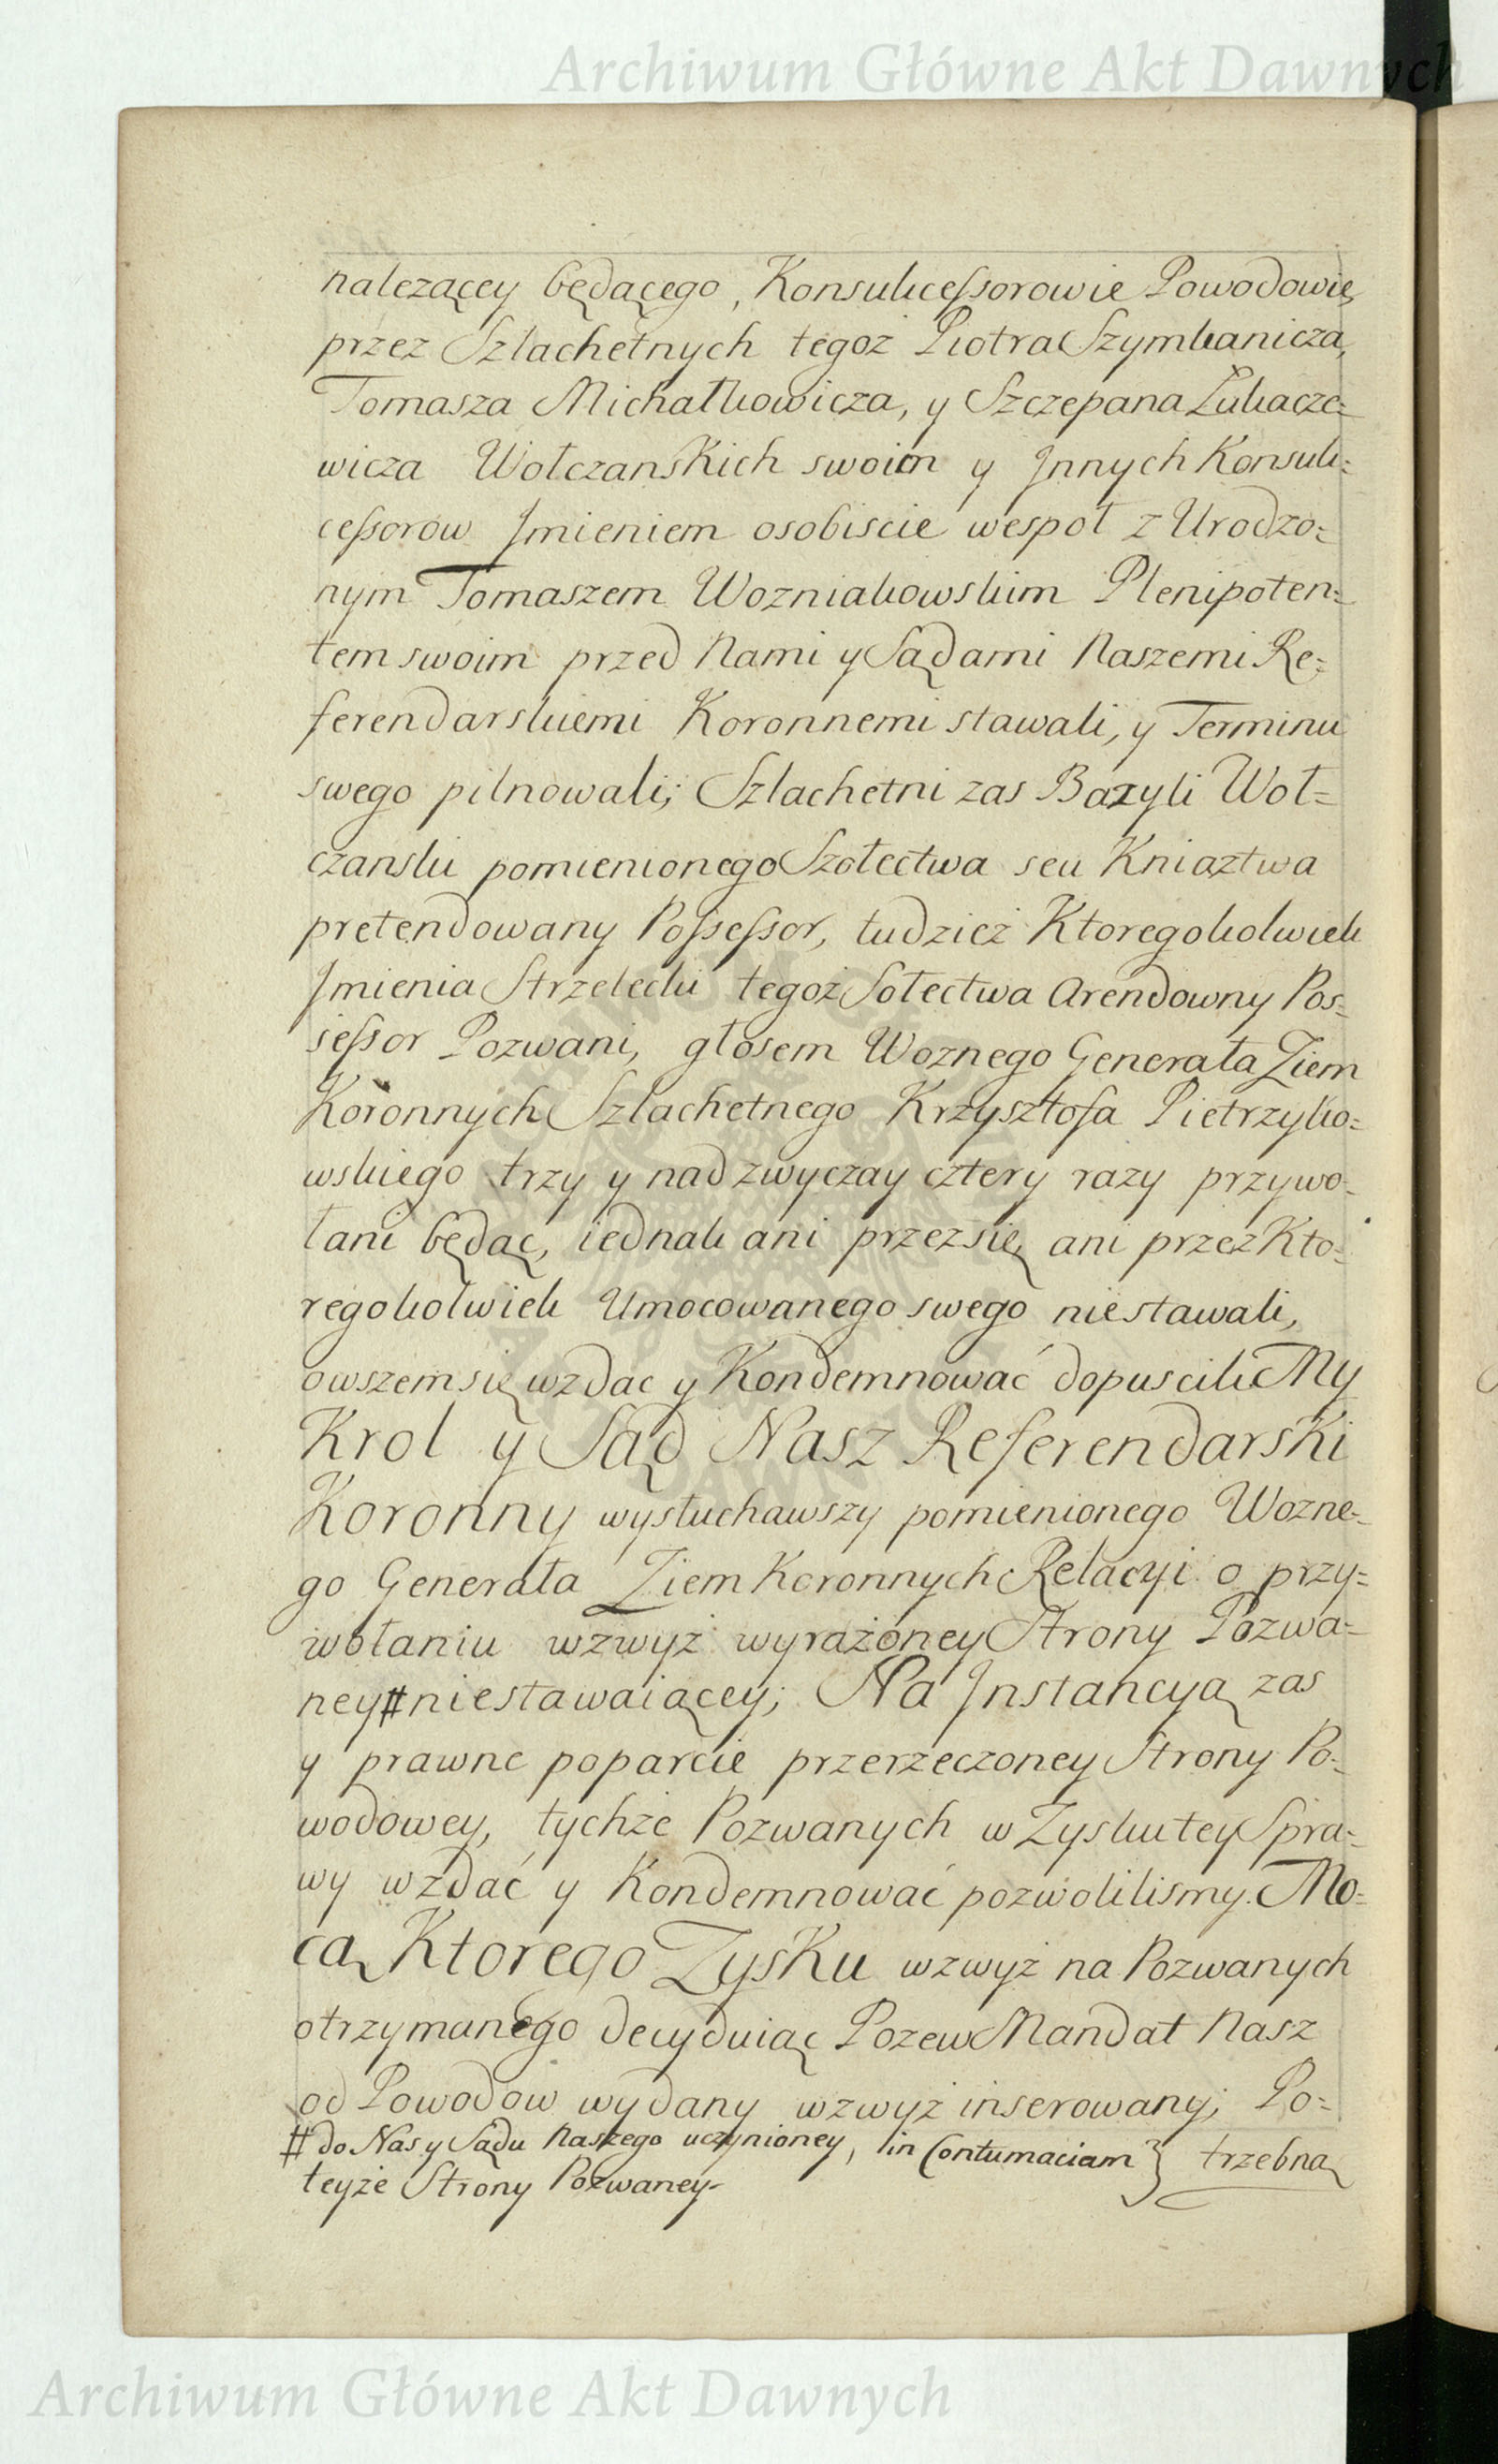 Archiwum Główne Akt Dawnych
nalezącey będącego, Konsukcessorowie Powodowie
przez Szlachetnych tegoz Piotra Szymkanicza,
Tomasza Michałkowicza, y Szczepana Łukacze=
wicza Wołczanskich swoim y Innych Konsuk=
cessorow Imieniem osobiscie wespoł z Urodzo=
nym Tomaszem Wozniakowskim Plenipoten=
tem swoim przed Nami y Sądami Naszemi Re=
ferendarskiemi Koronnemi stawali, y Terminu
swego pilnowali; Szlachetni zas Bazyli Woł=
czanski pomienionego Szołectwa seu Kniaztwa
pretendowany Possessor, tudziez Ktoregokolwiek
Imienia Strzelecki tegoż Sołectwa Arendowny Pos=
sessor Pozwani, głosem Woznego Generała Ziem
Koronnych Szlachetnego Krzysztofa Pietrzyko=
wskiego trzy y nadzwyczay cztery razy przywo=
łani będąc, iednak ani przez się, ani przez Kto=
regokolwiek Umocowanego swego nie stawali,
owszem się wzdac y Kondemnować dopuscili My
Krol y Sąd Nasz Referendarski
Koronny wysłuchawszy pomienionego Wozne=
go Generała Ziem Koronnych Relacyi o przy=
wołaniu wzwyż wyrażoney Strony Pozwa=
ney # niestawaiącey; Na Instancyą zas
y prawne poparcie przerzeczoney Strony Po=
wodowey, tychże Pozwanych w Zysku tey Spra=
wy wzdać y Kondemnować pozwolilismy. Mo=
cą Ktorego Zysku wzwyż na Pozwanych
otrzymanego decyduiąc Pozew Mandat Nasz
od Powodow wydany wzwyż inserowany; Po=
# do Nas y Sądu Naszego uczynioney, in Contumaciam } trzebną
teyże Strony Pozwaney
Archiwum Główne Akt Dawnych